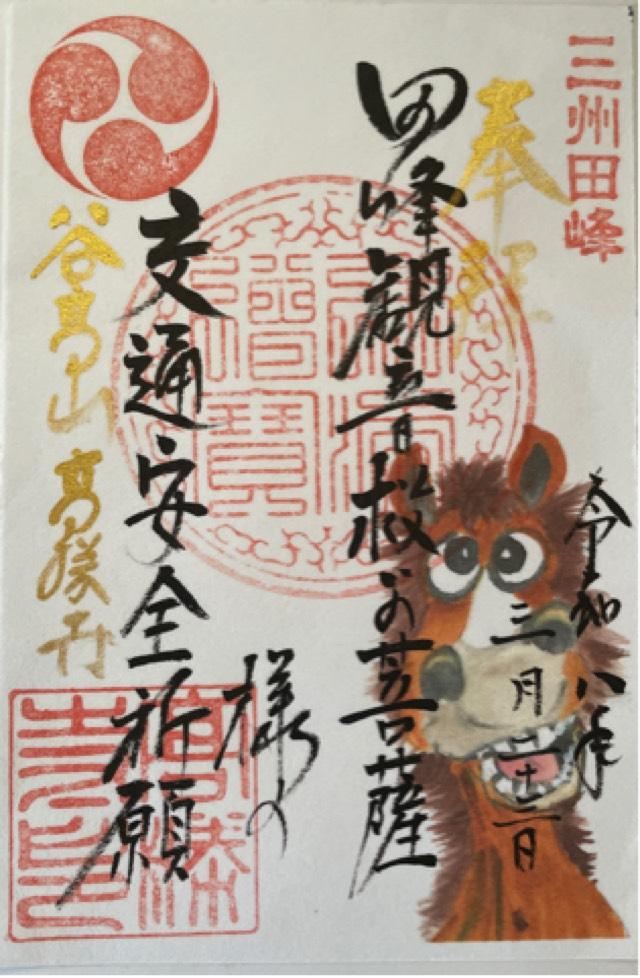 三州田峰
奉拝
令和八年
三月二十三日
田峰観音救いの菩薩
様の
交通安全祈願
谷高山 高勝寺
高勝寺印